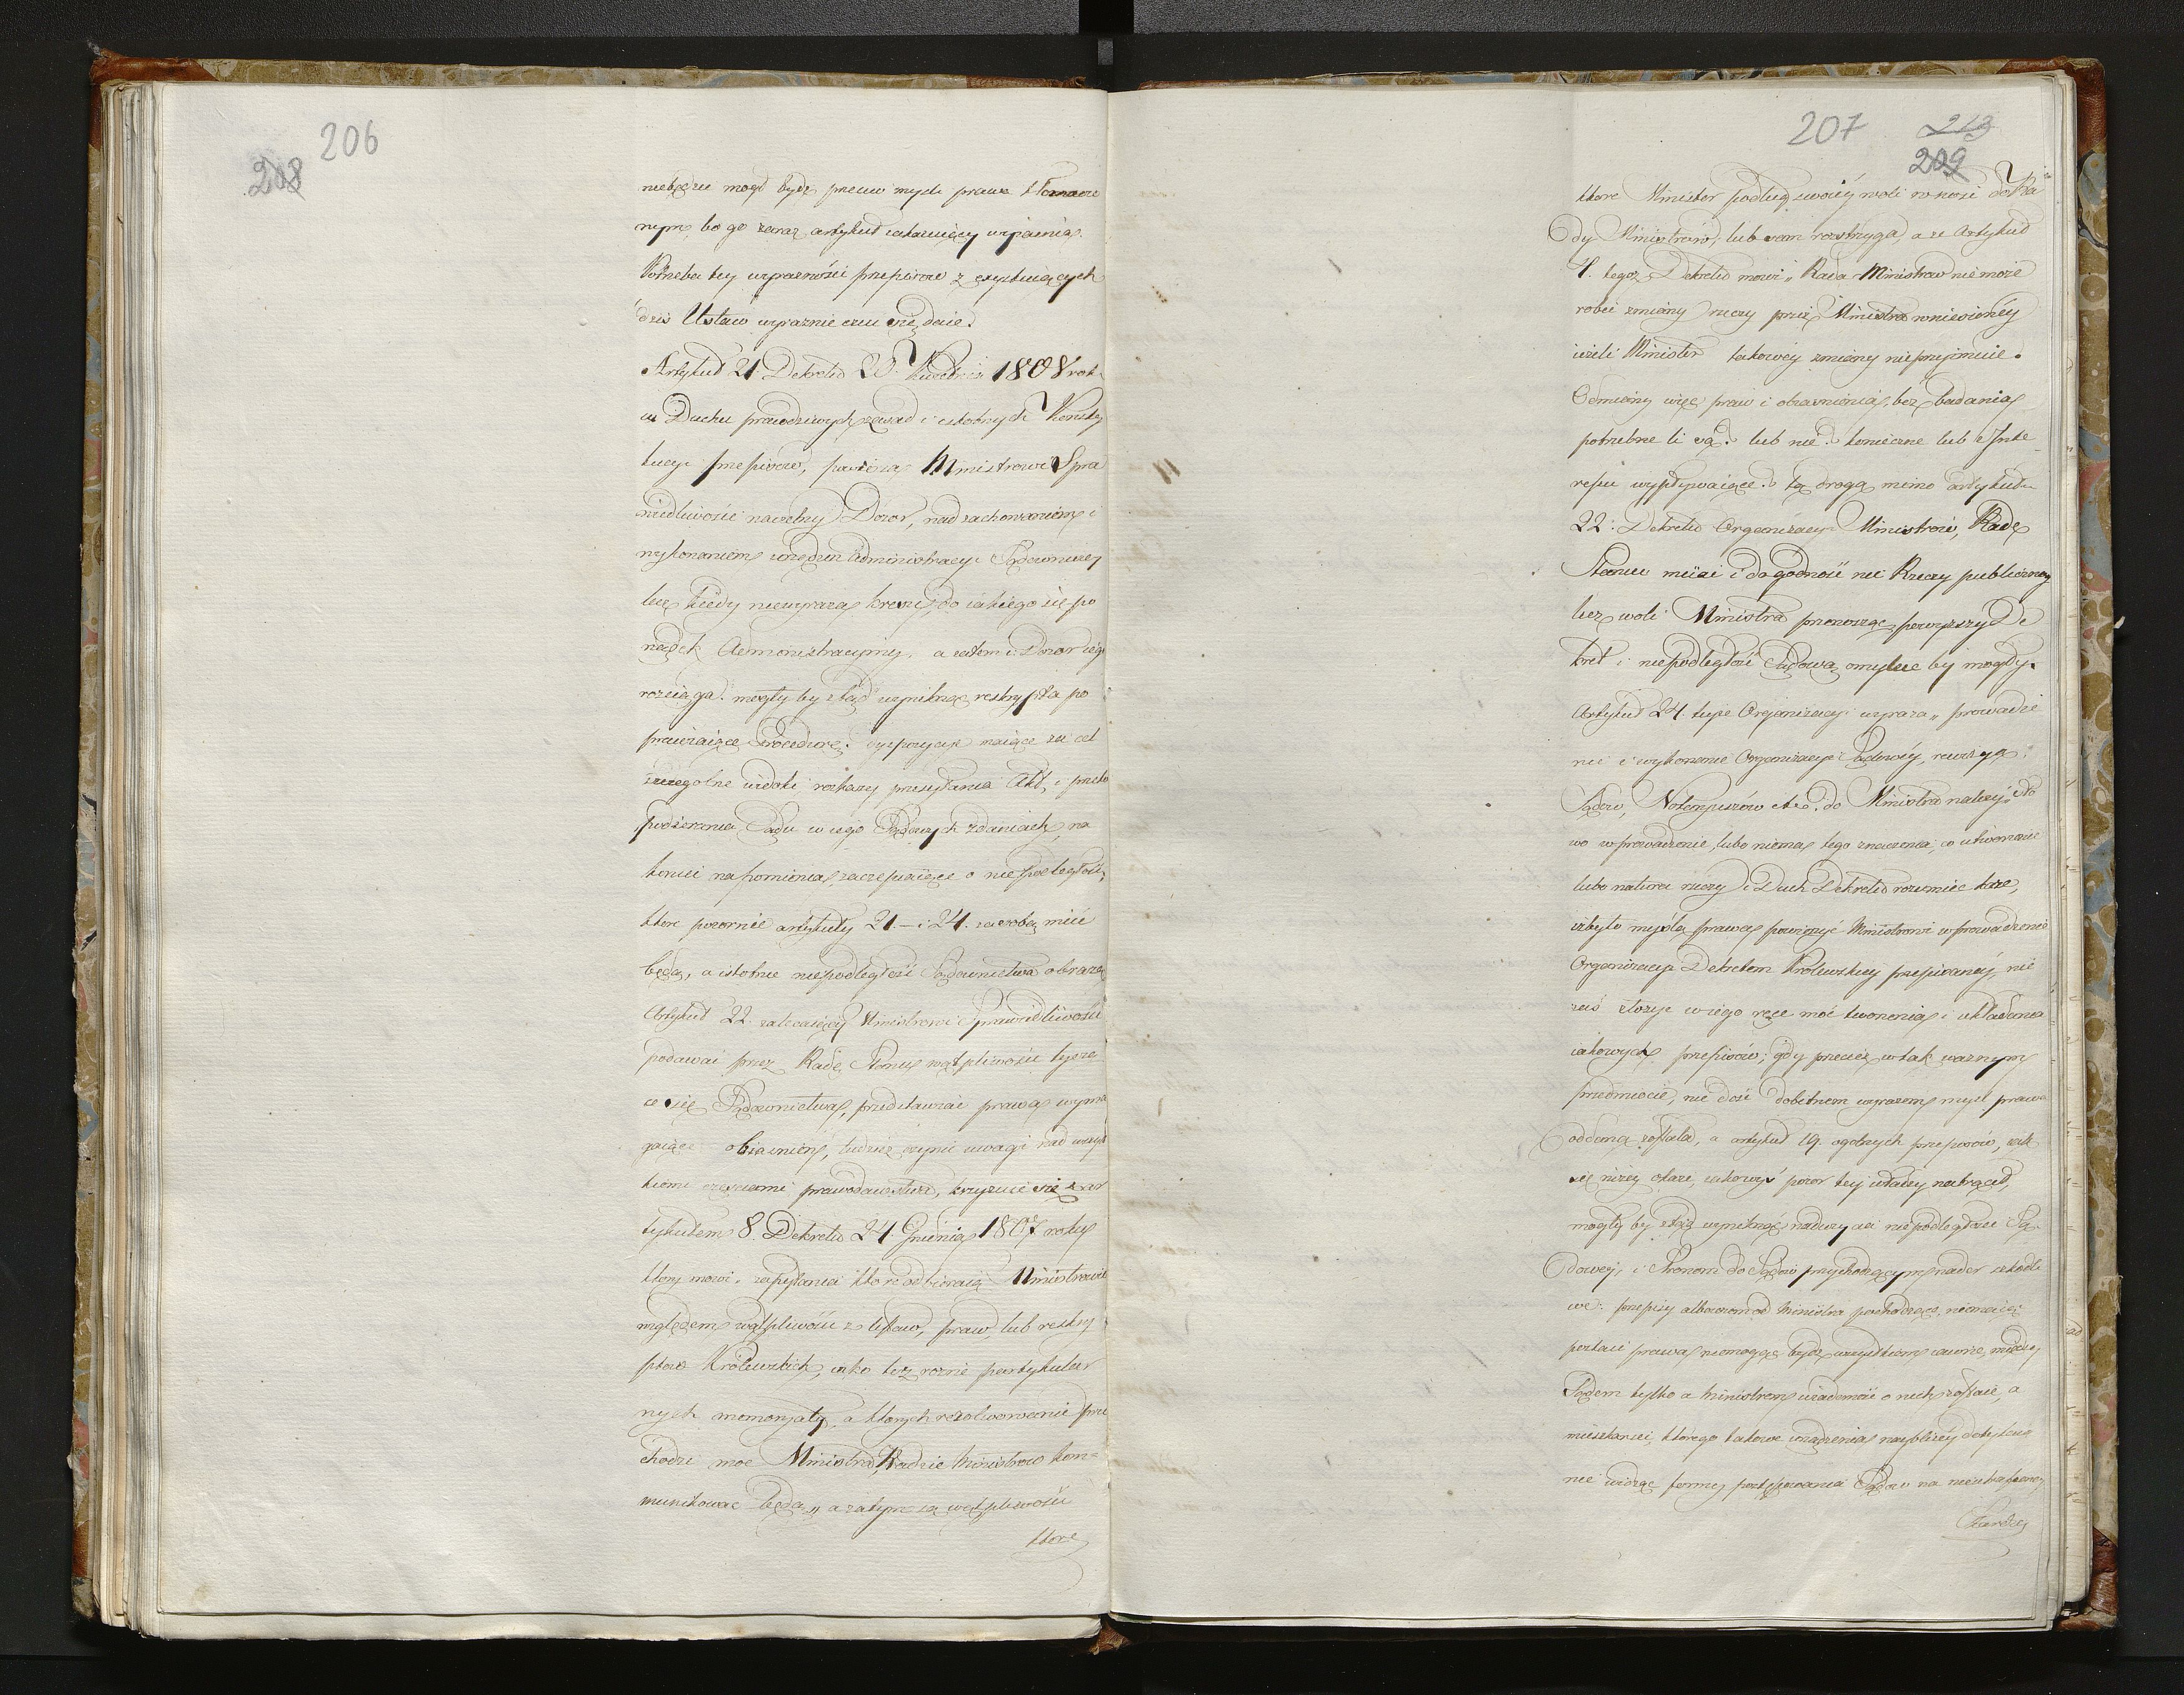 206
208
niebędzie mogł bydz przeciw myśli prawa tłomaczo
nym, bo go zaraz artykuł zakazuiący uiaśnia.
Potrzeba tey wyraźności przepisow z exystuiących
dziś Ustaw wyraźnie czuć się daie.
Artykuł 21. Dekretu 20. Kwietnia 1808 rok
w Duchu prawdziwych zasad i istotnych Konsty
tucyi przepisow, powierza Ministrowi Spra
wiedliwości naczelny Dozor, nad zachowaniem i
wykonaniem urządzeń Administracyi Sądowniczey
lecz kiedy niewyraża kresu, do iakiego się po
rządek Administracyiny, a zatem i Dozor iego
rozciąga. mogłyby ztąd wyniknąć reskrypta po
prawiaiące Procedurę. dyspozycye maiące za cel
szczegolne widoki rozkazy przesyłania Akt, i przeto
podżerania Sądu w iego Sądowych zdaniach, na
koniec napomnienia, zaczepiaiące o niepodległość,
ktore pozornie artykuły 21. – i 24. za sobą mieć
będą, a istotnie niepodległość Sądownictwa obrażą
Artykuł 22. zalecaiący Ministrowi Sprawiedliwości
podawać przez Radę Stanu wątpliwości tyczą
ce się Sądownictwa, przedstawiać prawa wyma
gaiące obiaśnień, tudzież czynić uwagi nad wszyst
kiemi częściami prawodawstwa, krzyżuie się z ar
tykułem 8. Dekretu 24. Grudnia 1807 roku
ktory mowi „ zapytania ktore odbieraią Ministrowie
względem wątpliwości z Ustaw, praw, lub reskry
ptow Królewskich, iako też rożne partykular
nych memoryały, a ktorych rezolwowanie prze
chodzi moc Ministra, Radzie Ministrow kom=
munikować będą „ a zatym są wątpliwości
ktore
207
213
209
ktore Minister podług swoiéy woli wnosi do Ra
dy Ministrów, lub sam rozstrzyga, a że Artykuł
4. tegoż Dekretu mowi „ Rada Ministrow nie może
robić zmiany rzeczy przez Ministra wniesionéy
ieżeli Minister takowéy zmiany nieprzyimuie.
Odmiany więc praw i obiaśnienia, bez badania
potrzebne li są? lub nie? konieczne lub z Inte
ressu wypływaiące? tą drogą mimo Artykułu
22. Dekretu Organizacyi Ministrow, Radę
Stanu miiać i dogodność nie Rzeczy publiczney
lecz woli Ministra przenosząc powyższy De
kret i niepodległość Sądową omylać by mogły.
Artykuł 24. teyże Organizacyi wyraża „ prowadze
nie i wykonanie Organizacyi Sądowéy, rewizya
Sądow, Notaryuszów etc: do Ministra należy „ sło
wo wprowadzenie, lubo niema tego znaczenia, co utworzenie
lubo natura rzeczy i Duch Dekretu rozumieć każe,
iżby to myślą prawa, powierzyć Ministrowi wprowadzenie
Organizacyi Dekretem Królewskiey przepisanéy, nie
zaś złożyć w iego ręce moc tworzenia i układania
iakowych przepisów; gdy przecież w tak ważnym
przedmiocie, nie dość dobitnem wyrazem myśl prawa
oddaną została, a artykuł 19. ogólnych przepisów, iak
się niżey okaże, iakowyś pozor tey władzy nakręcał,
mogły by ztąd wyniknąć nadużycia niepodległości Są
dowey, i Stronom do Sądow przychodzącym nader szkodli
we: przepisy albowiem od Ministra pochodzące, niemaiąc
postaci prawa, niemogąc bydz wszystkim iawne, między
Sądem tylko a Ministrem wiadomość o nich zostaie, a
mieszkaniec, którego takowe urządzenia naybliżey dotykaią
nie widząc formy postępowania Sądow na nieutrafiony